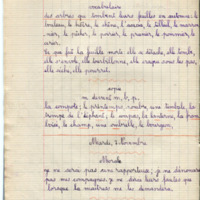 vocabulaire
des arbres qui tombent leurs feuilles en automne : le
bouleau, le hêtre, le chêne, l'acacia, le tilleul, le marron
nier, le pêcher, le poirier, le prunier, le pommier, le
cerisier.
Ce que fait la feuille morte : elle se détache, elle tombe,
elle s'envole, elle tourbillonne, elle craque sous les pas,
elle sèche, elle pourrit.
copie
m devant m, b, p.
la compote ; le printemps, novembre, une timbale, la
trompe de l'éléphant, le compas, la tambour, la
le champ, une ombrelle, le bourgeon.
Mercredi, 7 Novembre
Morale
je ne serai pas une rapporteuse ; je ne dénoncerai
pas mes compagnes ; je ne dirai leurs fautes que
lorsque la maîtresse me les demandera.